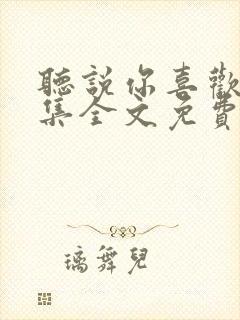 聽說你喜歡
集全文免費
璃舞兒